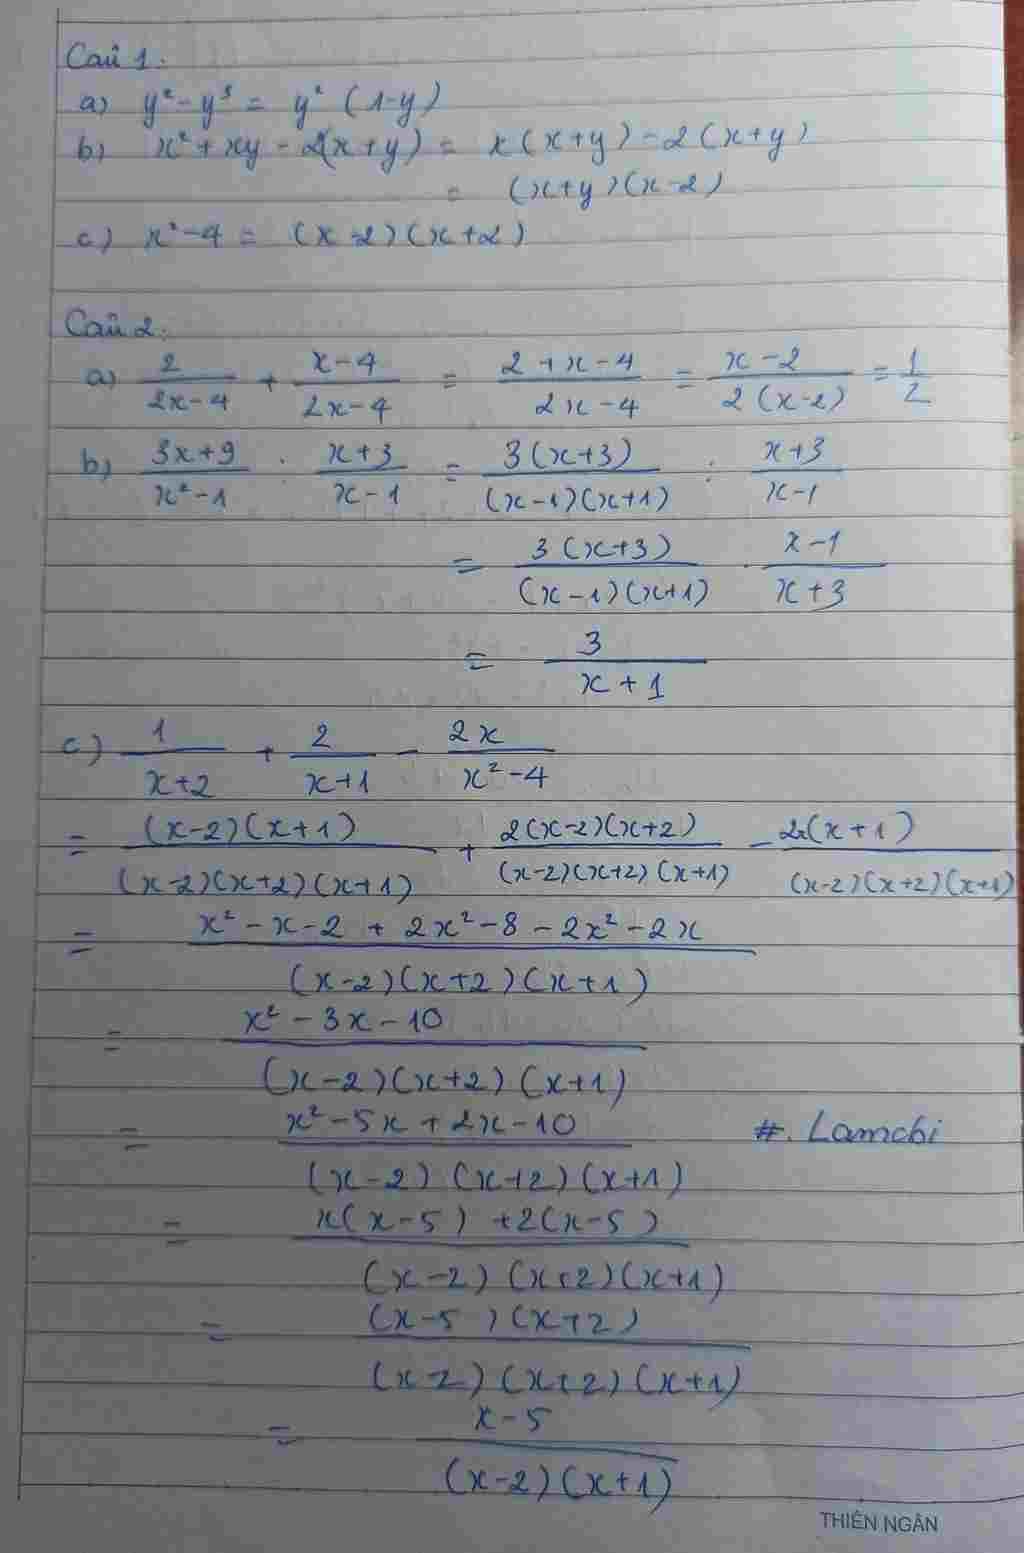 Câu 1:
a) y² - y³ = y² (1-y)
b) x² + xy - 2(x+y) = x(x+y) - 2(x+y)
= (x+y)(x-2)
c) x² - 4 = (x-2)(x+2)
Câu 2:
a) 2/(2x-4) + (x-4)/(2x-4) = (2+x-4)/(2x-4) = (x-2)/(2(x-2)) = 1/2
b) (3x+9)/(x²-1) : (x+3)/(x-1) = 3(x+3)/((x-1)(x+1)) : (x+3)/(x-1)
= 3(x+3)/((x-1)(x+1)) . (x-1)/(x+3)
= 3/(x+1)
c) 1/(x+2) + 2/(x+1) - 2x/(x²-4)
= (x-2)(x+1)/((x-2)(x+2)(x+1)) + 2(x-2)(x+2)/((x-2)(x+2)(x+1)) - 2x(x+1)/((x-2)(x+2)(x+1))
= (x²-x-2+2x²-8-2x²-2x)/((x-2)(x+2)(x+1))
= (x²-3x-10)/((x-2)(x+2)(x+1))
= (x²-5x+2x-10)/((x-2)(x+2)(x+1)) #. Lamchi
= (x(x-5)+2(x-5))/((x-2)(x+2)(x+1))
= (x-5)(x+2)/((x-2)(x+2)(x+1))
= (x-5)/((x-2)(x+1))
THIÊN NGÂN